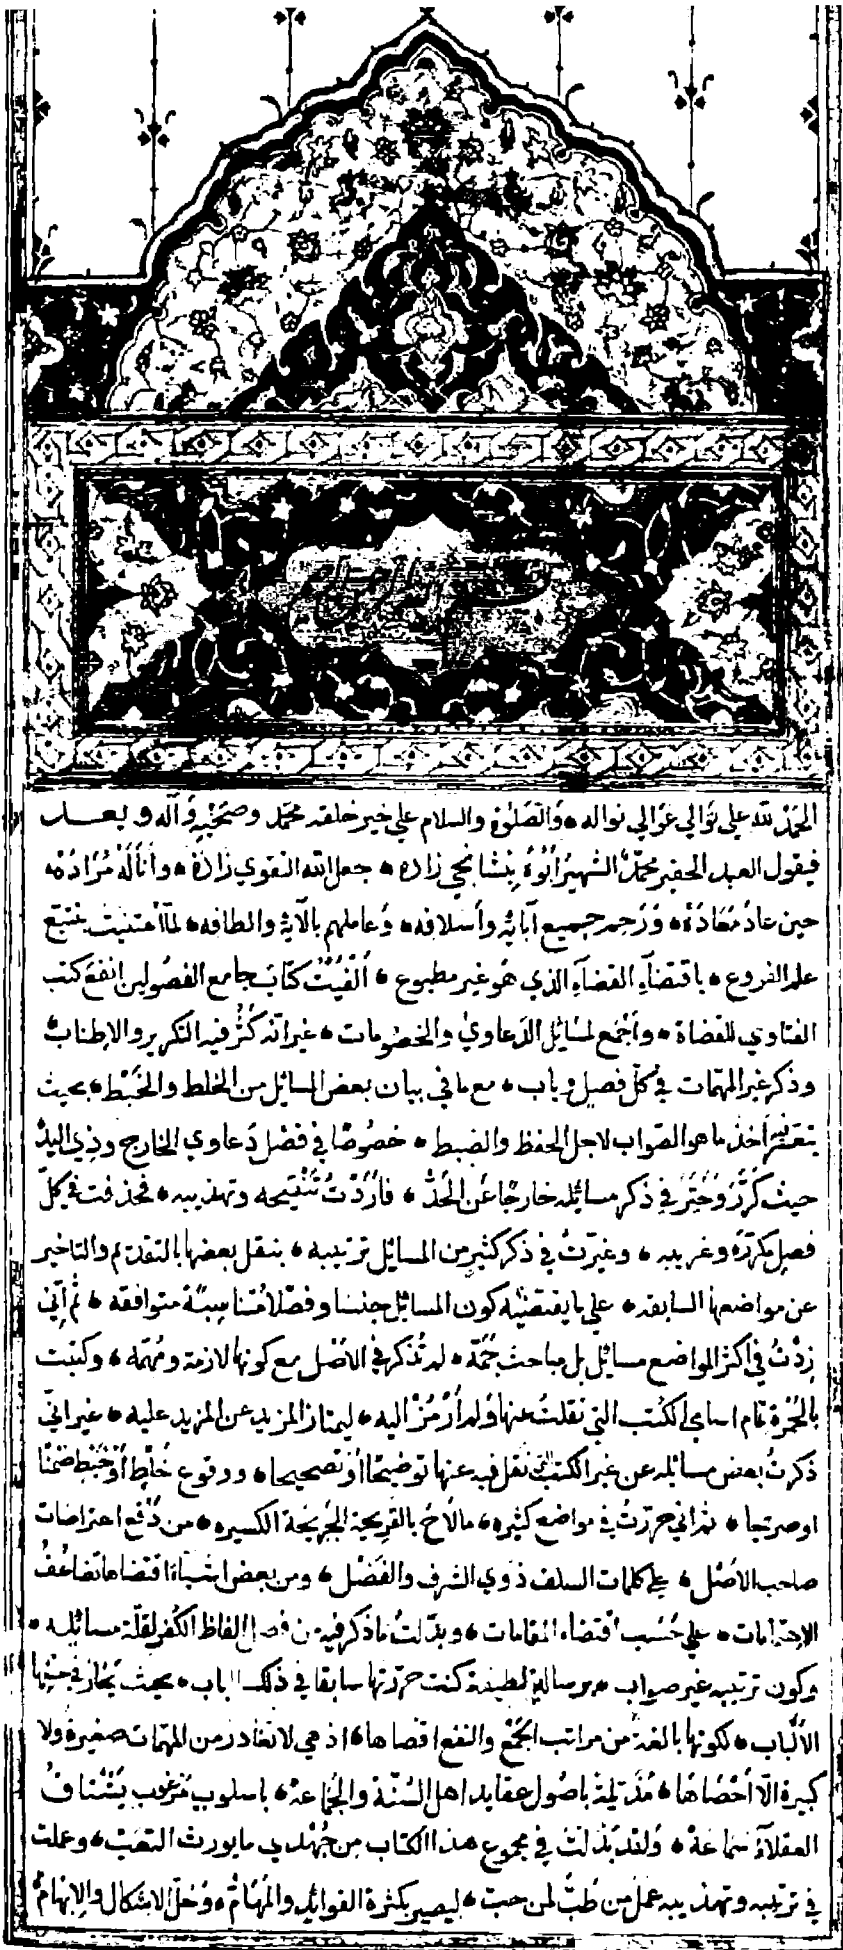 الحمد لله علي توالي غوالي نواله والصلوة والسلام علي خير خلقه محمد وصحبه وآله وبعد
فيقول العبد الحقير محمد الشهير أبوه بنشانجي زاده جعل الله التقوي زاده وأناله مراده
حين عاد معاده ورحم جميع آبائه وأسلافه وعاملهم بآلائه والطافه لما اعتنيت بتتبع
علم الفروع باقتضاء القضاء الذي هو غير مطبوع ألفيت كتاب جامع الفصولين انفع كتب
الفتاوي للقضاة وأجمع لمسائل الدعاوي والخصومات غير انه كثر فيه التكرير والإطناب
وذكر غير المهمات في كل فصل وباب مع ما في بيان بعض المسائل من الخلط والخبط بحيث
يتعسر أخذ ما هو الصواب لاجل الحفظ والضبط خصوصا في فصل دعاوي الخارج وذي اليد
حيث كرر وحير في ذكر مسائله خارجا عن الحد فأردت تنقيحه وتهذيبه فحذفت في كل
فصل مكرره وغريبه وغيرت في ذكر كثير من المسائل ترتيبه بنقل بعضها بالتقديم والتاخير
عن مواضعها السابقه علي ما يقتضيه كون المسائل جنسا وفصلا متناسبة متوافقه ثم إني
زدت في اكثر المواضع مسائل بل مباحث جمة لم تذكر في الأصل مع كونها لازمة ومهمه وكتبت
بالحمرة تمام اسامي الكتب التي نقلت عنها ولم أرمز اليه ليمتاز المزيد عن المزيد عليه غير اني
ذكرت بعض مسائله عن غير الكتب التي نقل فيه عنها توضيحا أو تصحيحا ووقوع خلط أو خبط ضمنا
او صريحا ثم اني حررت في مواضع كثيره ما لاح بالقريحة الجريحة الكسيره من دفع اعتراضات
صاحب الأصل علي كلمات السلف ذوي الشرف والفضل ومن بعض اشباه اقتضاها تضاعف
الاهتمامات علي حسب اقتضاء المقامات وبدلت ما ذكر فيه من فصل الفاظ الكفر لقلة مسائله
وكون ترتيبه غير صواب برسالة لطيفة كنت حررتها سابقا في ذلك الباب بحيث يحار في حسنها
الألباب لكونها بالغة من مراتب الجمع والنفع اقصاها اذ هي لا تغادر من المهمات صغيرة ولا
كبيرة الا أحصاها مذيلة باصول عقايد اهل السنة والجماعة باسلوب مرغوب يشتاق
العقلاء سماعه ولقد بذلت في مجموع هذا الكتاب من جهدي ما يورث التعب وعملت
في ترتيبه وتهذيبه عمل من طب لمن حب ليصير بكثرة الفوائد والمهام وحل الاشكال والإبهام